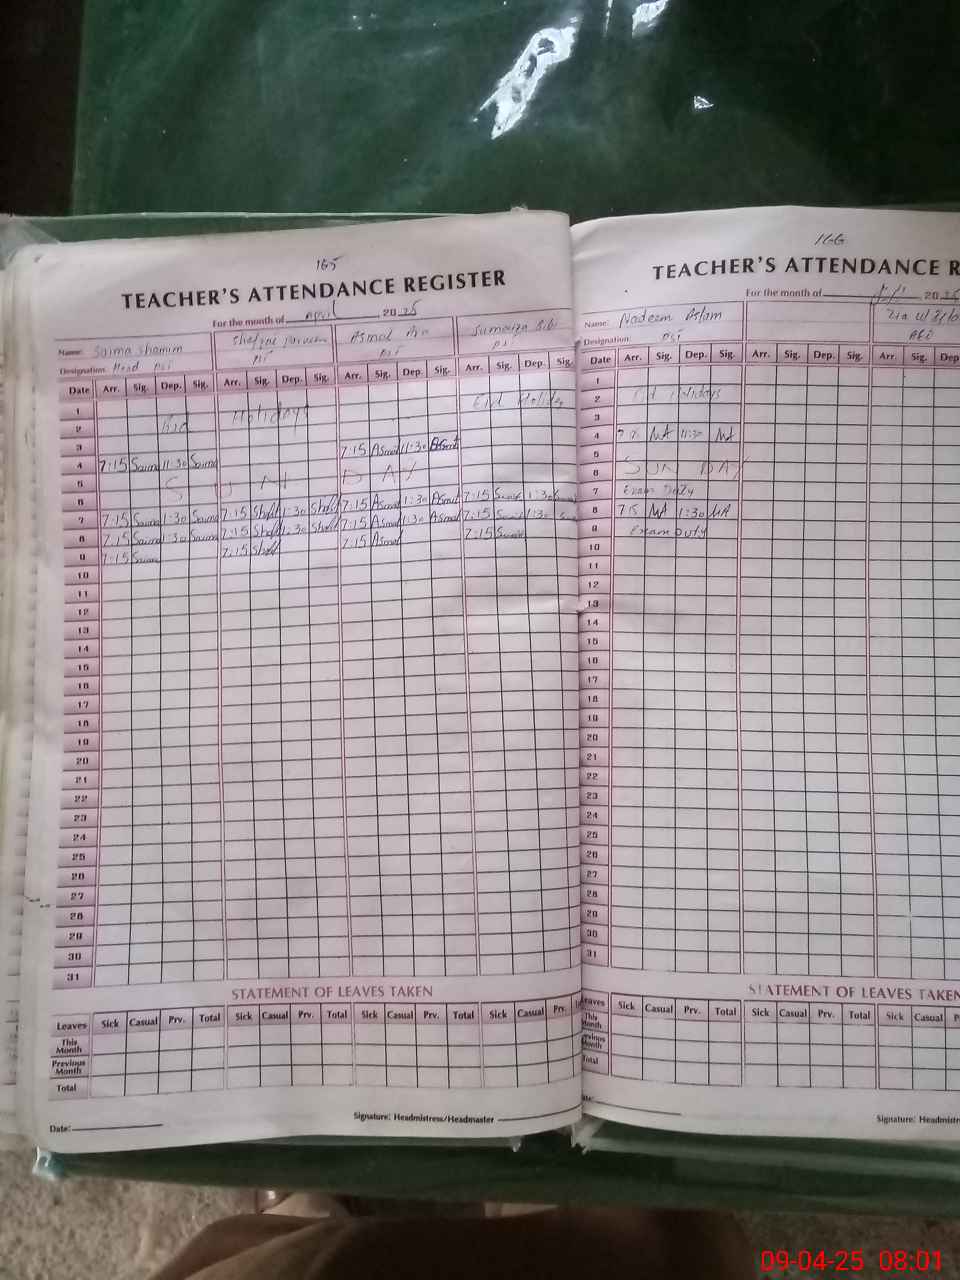 165
TEACHER'S ATTENDANCE REGISTER
For the month of April 2025
Name: Saima Shamim Asmal Sumaira Bibi
Designation: Head PST PST PST PST
Date Arr. Sig. Dep. Sig. Arr. Sig. Dep. Sig. Arr. Sig. Dep. Sig. Arr. Sig. Dep. Sig.
1 Eid Holiday
2 Eid Holidays
3 7:15 Asmal 11:30 Asmal
4 7:15 Saima 11:30 Saima
5 SUN DAY
6 7:15 Asmal 1:30 Asmal 7:15 1:30
7 7:15 Saima 1:30 Saima 7:15 Shef 1:30 Shef 7:15 Asmal 1:30 Asmal 7:15 1:30
8 7:15 Saima 1:30 Saima 7:15 Shef 1:30 Shef 7:15 Asmal 7:15
9 7:15 Saima 7:15 Shef
10
11
12
13
14
15
16
17
18
19
20
21
22
23
24
25
26
27
28
29
30
31
STATEMENT OF LEAVES TAKEN
Leaves Sick Casual Prv. Total Sick Casual Prv. Total Sick Casual Prv. Total Sick Casual Prv.
This Month
Previous Month
Total
Date: Signature: Headmistress/Headmaster
166
TEACHER'S ATTENDANCE R
For the month of 2025
Name: Nadeem Aslam
Designation: PST AEO
Date Arr. Sig. Dep. Sig. Arr. Sig. Dep. Sig. Arr. Sig. Dep
1
2 Eid Holidays
3
4 7:15 NA 11:30 NA
5
6 SUN DAY
7 Exam Duty
8 7:15 NA 1:30 NA
9 Exam Duty
10
11
12
13
14
15
16
17
18
19
20
21
22
23
24
25
26
27
28
29
30
31
STATEMENT OF LEAVES TAKEN
Leaves Sick Casual Prv. Total Sick Casual Prv. Total Sick Casual
This Month
Previous Month
Total
Signature: Headmistre
09-04-25 08:01